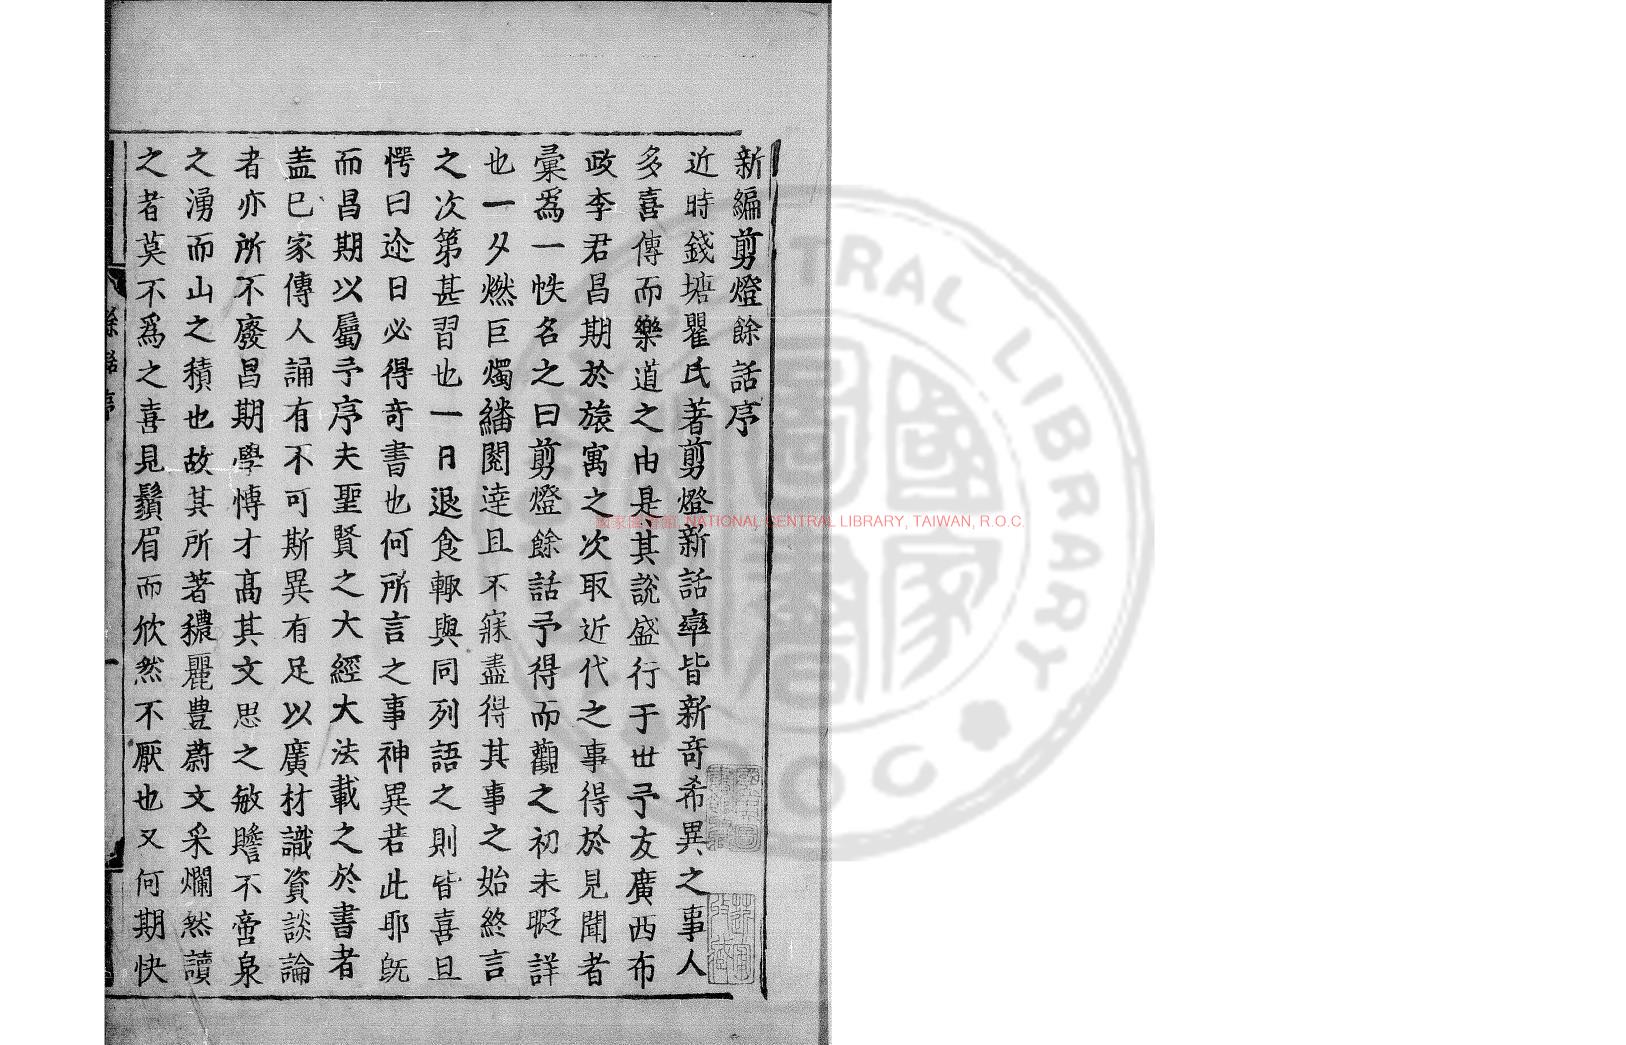 新編剪燈餘話序
近時錢塘瞿氏著剪燈新話率皆新奇希異之事人
多喜傳而樂道之由是其說盛行于世予友廣西布
政李君昌期於旅寓之次取近代之事得於見聞者
彙爲一帙名之曰剪燈餘話予得而觀之初未暇詳
也一夕燃巨燭繙閱達旦不寐盡得其事之始終言
之次第甚習也一日退食輙與同列語之則皆喜且
愕曰迩日必得奇書也何所言之事神異若此耶旣
而昌期以屬予序夫聖賢之大經大法載之於書者
盖已家傳人誦有不可斯異有足以廣材識資談論
者亦所不廢昌期學愽才高其文思之敏贍不啻泉
之湧而山之積也故其所著穠麗豊蔚文采爛然讀
之者莫不爲之喜見鬚眉而欣然不厭也又何期快
國家圖書館, NATIONAL CENTRAL LIBRARY, TAIWAN, R.O.C.
TRAL LIBRARY
ROC
國家圖書